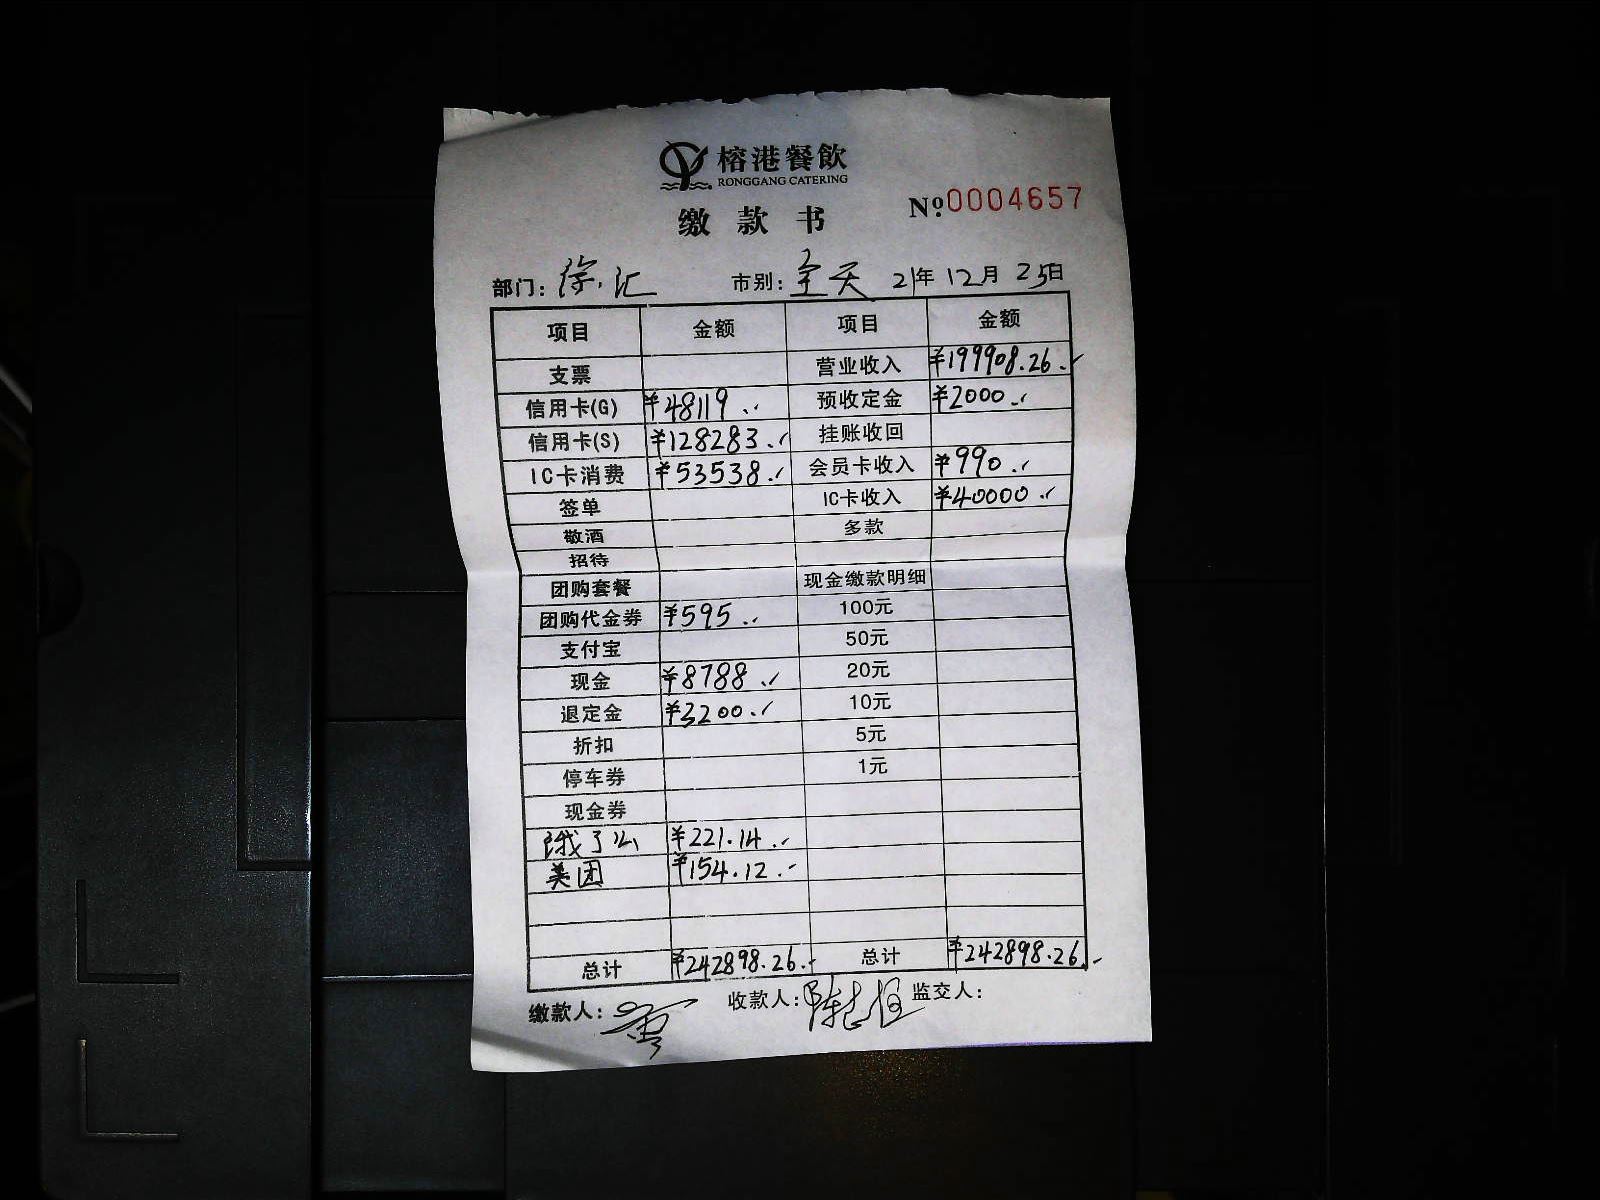 榕港餐飲
RONGGANG CATERING
缴 款 书 Nº 0004657
部门: 徐汇 市别: 全天 21年 12月 25日
项目 金额 项目 金额
支票 营业收入 ¥199908.26.
信用卡(G) ¥48119. 预收定金 ¥2000.
信用卡(S) ¥128283. 挂账收回
IC卡消费 ¥53538. 会员卡收入 ¥990.
签单 IC卡收入 ¥40000.
敬酒 多款
招待
团购套餐 现金缴款明细
团购代金券 ¥595. 100元
支付宝 50元
现金 ¥8788. 20元
退定金 ¥3200. 10元
折扣 5元
停车券 1元
现金券
饿了么 ¥221.14.
美团 ¥154.12.
总计 ¥242898.26. 总计 ¥242898.26.
缴款人: 收款人: 陈 监交人: